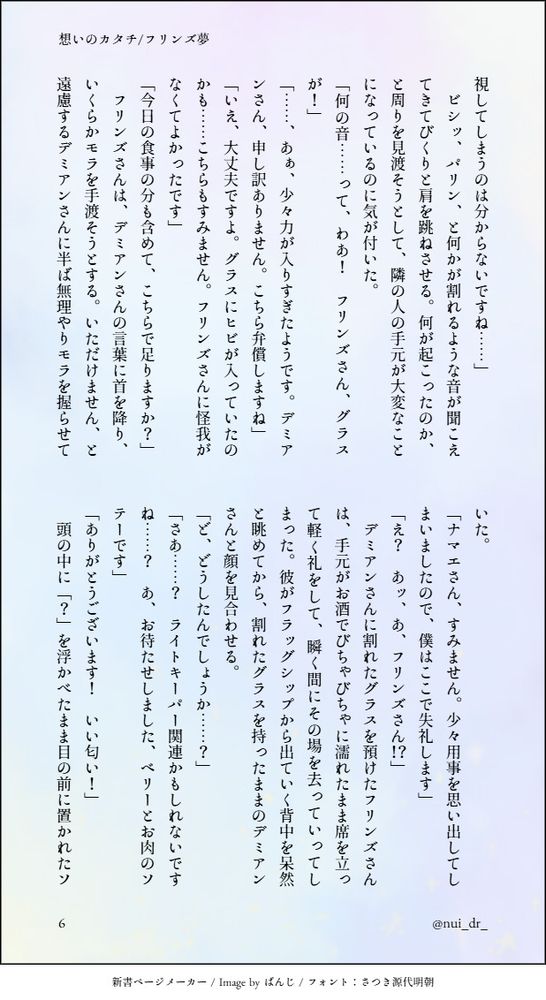 想いのカタチ/フリンズ夢
視してしまうのは分からないですね……」
　ビシッ、パリン、と何かが割れるような音が聞こえ
てきてびくりと肩を跳ねさせる。何が起こったのか、
と周りを見渡そうとして、隣の人の手元が大変なこと
になっているのに気が付いた。
「何の音……って、わあ！　フリンズさん、グラス
が！」
「……、あぁ、少々力が入りすぎたようです。デミア
ンさん、申し訳ありません。こちら弁償しますね」
「いえ、大丈夫ですよ。グラスにヒビが入っていたの
かも……こちらもすみません。フリンズさんに怪我が
なくてよかったです」
「今日の食事の分も含めて、こちらで足りますか？」
　フリンズさんは、デミアンさんの言葉に首を降り、
いくらかモラを手渡そうとする。いただけません、と
遠慮するデミアンさんに半ば無理やりモラを握らせて
いた。
「ナマエさん、すみません。少々用事を思い出してし
まいましたので、僕はここで失礼します」
「え？　あッ、あ、フリンズさん!?」
　デミアンさんに割れたグラスを預けたフリンズさん
は、手元がお酒でびちゃびちゃに濡れたまま席を立っ
て軽く礼をして、瞬く間にその場を去っていってし
まった。彼がフラッグシップから出ていく背中を呆然
と眺めてから、割れたグラスを持ったままのデミアン
さんと顔を見合わせる。
「ど、どうしたんでしょうか……？」
「さあ……？　ライトキーパー関連かもしれないです
ね……？　あ、お待たせしました、ベリーとお肉のソ
テーです」
「ありがとうございます！　いい匂い！」
　頭の中に「？」を浮かべたまま目の前に置かれたソ
6
@nui_dr_
新書ページメーカー / Image by ぱんじ / フォント：さつき源代明朝